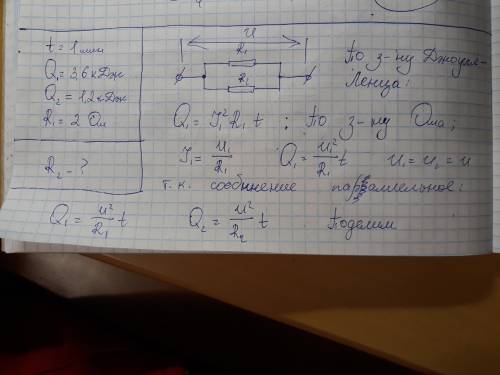 t = 1 мин
Q₁ = 3,6 кДж
Q₂ = 1,2 кДж
R₁ = 2 Ом
R₂ - ?
U
R₁
R₁
По з-ну Джоуля-
Ленца:
Q₁ = I₁² R₁ t : По з-ну Ома;
I₁ = U₁/R₁ Q₁ = U₁²/R₁ t U₁ = U₂ = U
т.к. соединение параллельное:
Q₁ = U²/R₁ t Q₂ = U²/R₂ t Поделим